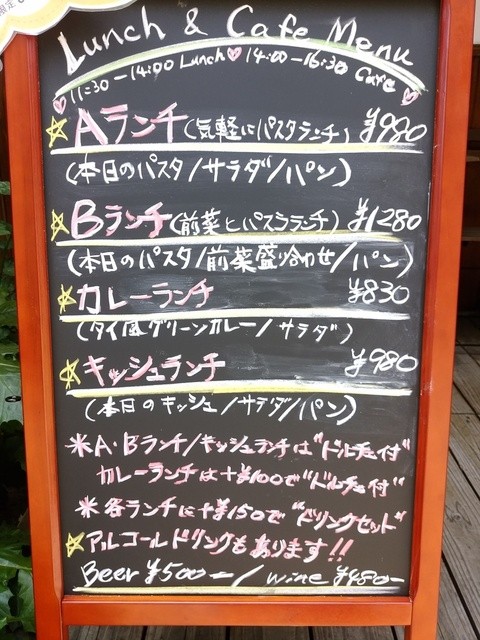 Lunch & Cafe Menu
11:30-14:00 Lunch♡14:00-16:30 Cafe
☆Aランチ(気軽にパスタランチ) ¥990
(本日のパスタ/サラダ/パン)
☆Bランチ(前菜とパスタランチ) ¥1280
(本日のパスタ/前菜盛り合わせ/パン)
☆カレーランチ ¥830
(タイ風グリーンカレー/サラダ)
☆キッシュランチ ¥980
(本日のキッシュ/サラダ/パン)
*A・Bランチ/キッシュランチは"ドルチェ付"
カレーランチは+¥100で"ドルチェ付"
*各ランチに+¥150で"ドリンクセット"
☆アルコールドリンクもあります!!
Beer ¥500-/wine ¥480-